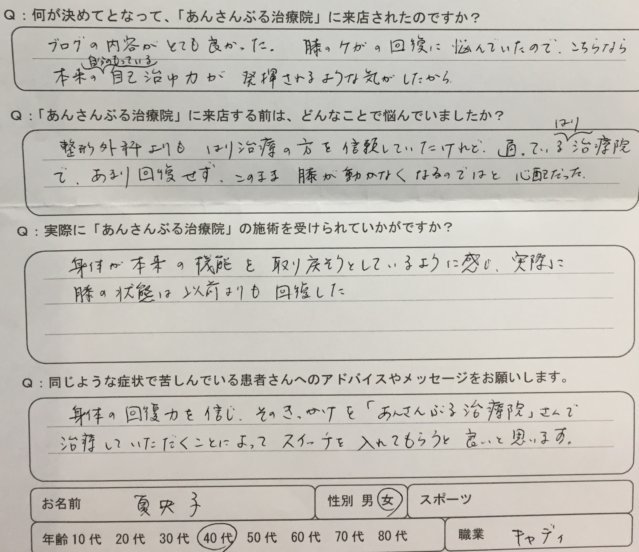 Q：何が決めてとなって、「あんさんぶる治療院」に来店されたのですか？
ブログの内容がとても良かった。膝のケガの回復に悩んでいたので、こちらなら
自分のもっている
本来の自己治ゆ力が発揮されるような気がしたから
Q：「あんさんぶる治療院」に来店する前は、どんなことで悩んでいましたか？
はり
整形外科よりもはり治療の方を信頼していたけれど、通っている治療院
で、あまり回復せず、このまま膝が動かなくなるのではと心配だった。
Q：実際に「あんさんぶる治療院」の施術を受けられていかがですか？
身体が本来の機能を取り戻そうとしているように感じ、実際に
膝の状態は以前よりも回復した
Q：同じような症状で苦しんでいる患者さんへのアドバイスやメッセージをお願いします。
身体の回復力を信じ、そのきっかけを「あんさんぶる治療院」さんで
治療していただくことによってスイッチを入れてもらうと良いと思います。
お名前 夏央子 性別 男 女 スポーツ
年齢 10代 20代 30代 40代 50代 60代 70代 80代 職業 キャディ